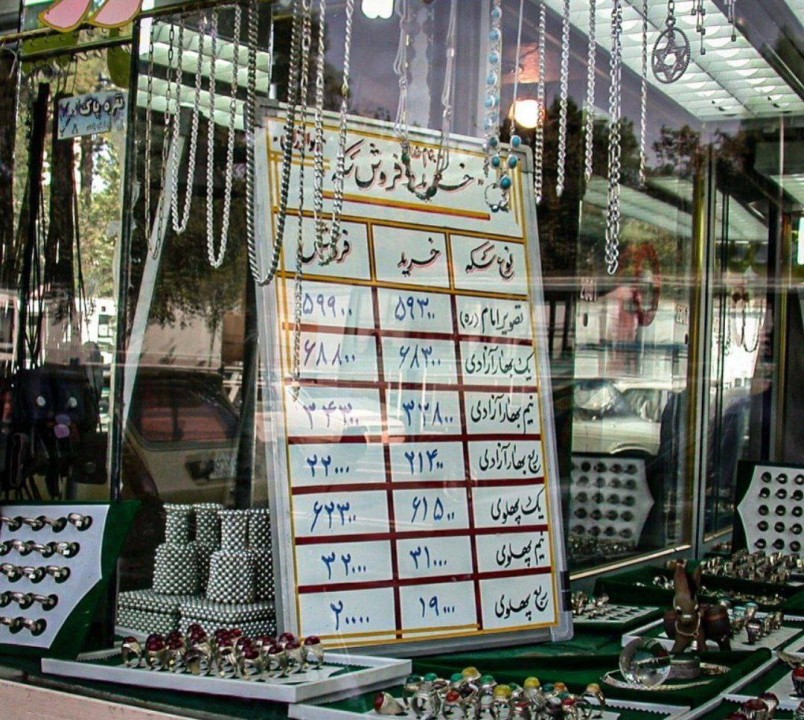 نقره پاک
خرید و فروش سکه
نوع سکه خرید فروش
تصویر امام (ره) ۵۹۳۰۰ ۵۹۹۰۰
یک بهار آزادی ۶۸۳۰۰ ۶۸۸۰۰
نیم بهار آزادی ۳۳۸۰۰ ۳۴۳۰۰
ربع بهار آزادی ۲۱۴۰۰ ۲۲۰۰۰
یک پهلوی ۶۱۵۰۰ ۶۲۳۰۰
نیم پهلوی ۳۱۰۰۰ ۳۲۰۰۰
ربع پهلوی ۱۹۰۰۰ ۲۰۰۰۰